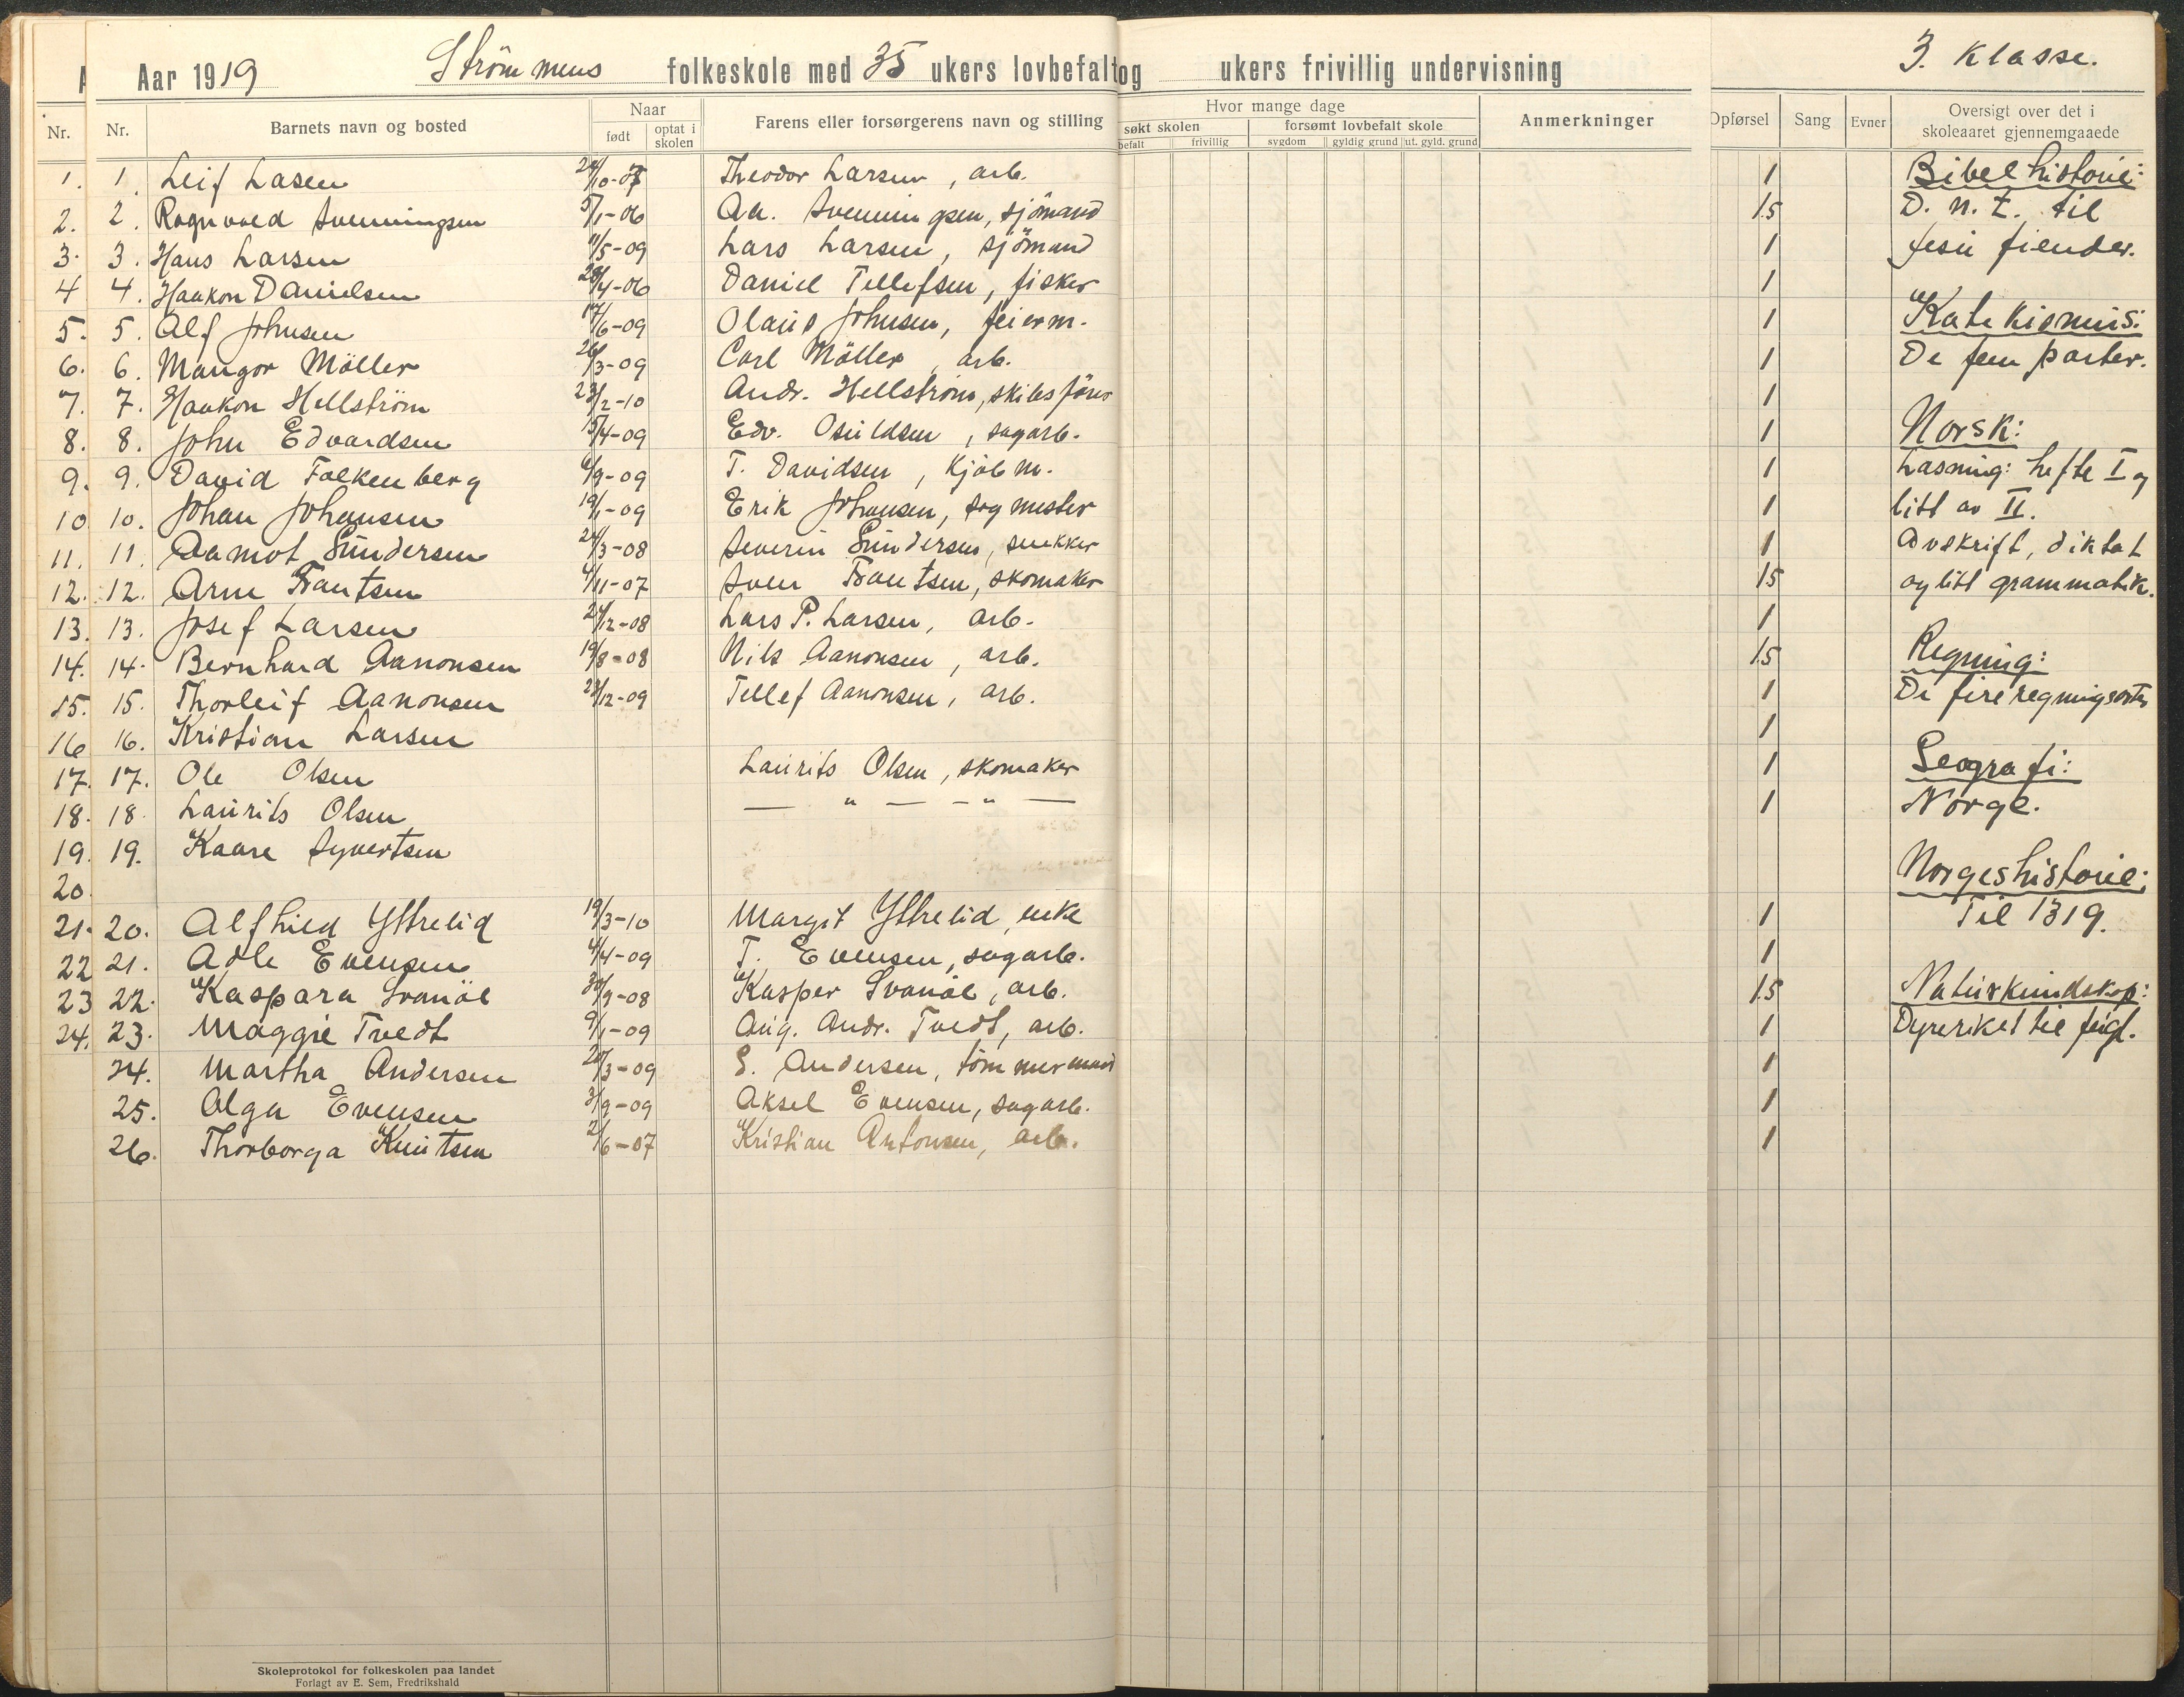 Aar 1919 Strömmens folkeskole med 35 ukers lovbefalt og ukers frivillig undervisning 3. Klasse.
Nr. Nr. Barnets navn og bosted Naar født optat i skolen Farens eller forsørgerens navn og stilling
Hvor mange dage søkt skolen befalt frivillig forsømt lovbefalt skole sygdom gyldig grund ut. gyld. grund Anmerkninger
Opførsel Sang Evner Oversigt over det i skoleaaret gjennemgaaede
1. 1. Leif Lasen 24/10-07 Theodor Larsen, arb. 1
2. 2. Ragnvald Svenningsen 5/1-06 Aa. Svenningsen, sjömand 1.5
3. 3. Hans Larsen 11/5-09 Lars Larsen, sjömand 1
4 4. Haakon Danielsen 28/4-06 Daniel Tellefsen, fisker 1
5. 5. Alf Johnsen 17/6-09 Olaus Johnsen, feierm. 1
6. 6. Mangor Möller 26/3-09 Carl Möller, arb. 1
7. 7. Haakon Hellström 23/2-10 Andr. Hellström, skibsförer 1
8. 8. John Edvardsen 15/4-09 Edv. Osuldsen, sagarb. 1
9. 9. David Falkenberg 6/9-09 T. Davidsen, kjöbm. 1
10 10. Johan Johansen 19/1-09 Erik Johansen, sagmester 1
11. 11. Aamot Gundersen 24/3-08 Severin Gundersen, snekker 1
12. 12. Arne Frantsen 4/11-07 Sven Frantsen, skomaker 1.5
13. 13. Josef Larsen 24/12-08 Lars P. Larsen, arb. 1
14. 14. Bernhard Aanonsen 19/8-08 Nils Aanonsen, arb. 1.5
15. 15. Thorleif Aanonsen 28/12-09 Tellef Aanonsen, arb. 1
16 16. Kristian Larsen 1
17. 17. Ole Olsen Laurits Olsen, skomaker 1
18. 18. Laurits Olsen — " — — " — 1
19. 19. Kaare Syvertsen
20.
21. 20. Alfhild Ystrelid 19/3-10 Margit Ystrelid, enke 1
22 21. Adle Evensen 4/4-09 T. Evensen, sagarb. 1
23 22. Kaspara Svanöe 30/9-08 Kasper Svanöe, arb. 1.5
24. 23. Maggie Tvedt 9/1-09 Aug. Andr. Tvedt, arb. 1
24. Martha Andersen 20/3-09 G. Andersen, tömmermand 1
25. Olga Evensen 3/9-09 Aksel Evensen, sagarb. 1
26. Thorborga Knutsen 2/6-07 Kristian Antonsen, arb. 1
Bibelhistorie:
D. n. t. til
Jesu fiender.
Katekismus:
De fem parter.
Norsk:
Læsning: hefte I og
litt av II.
Avskrift, diktat
og litt grammatik.
Regning:
De fire regningsarter
Geografi:
Norge.
Norgeshistorie:
Til 1319.
Naturkundskap:
Dyreriket til fugl.
Skoleprotokol for folkeskolen paa landet
Forlagt av E. Sem, Fredrikshald